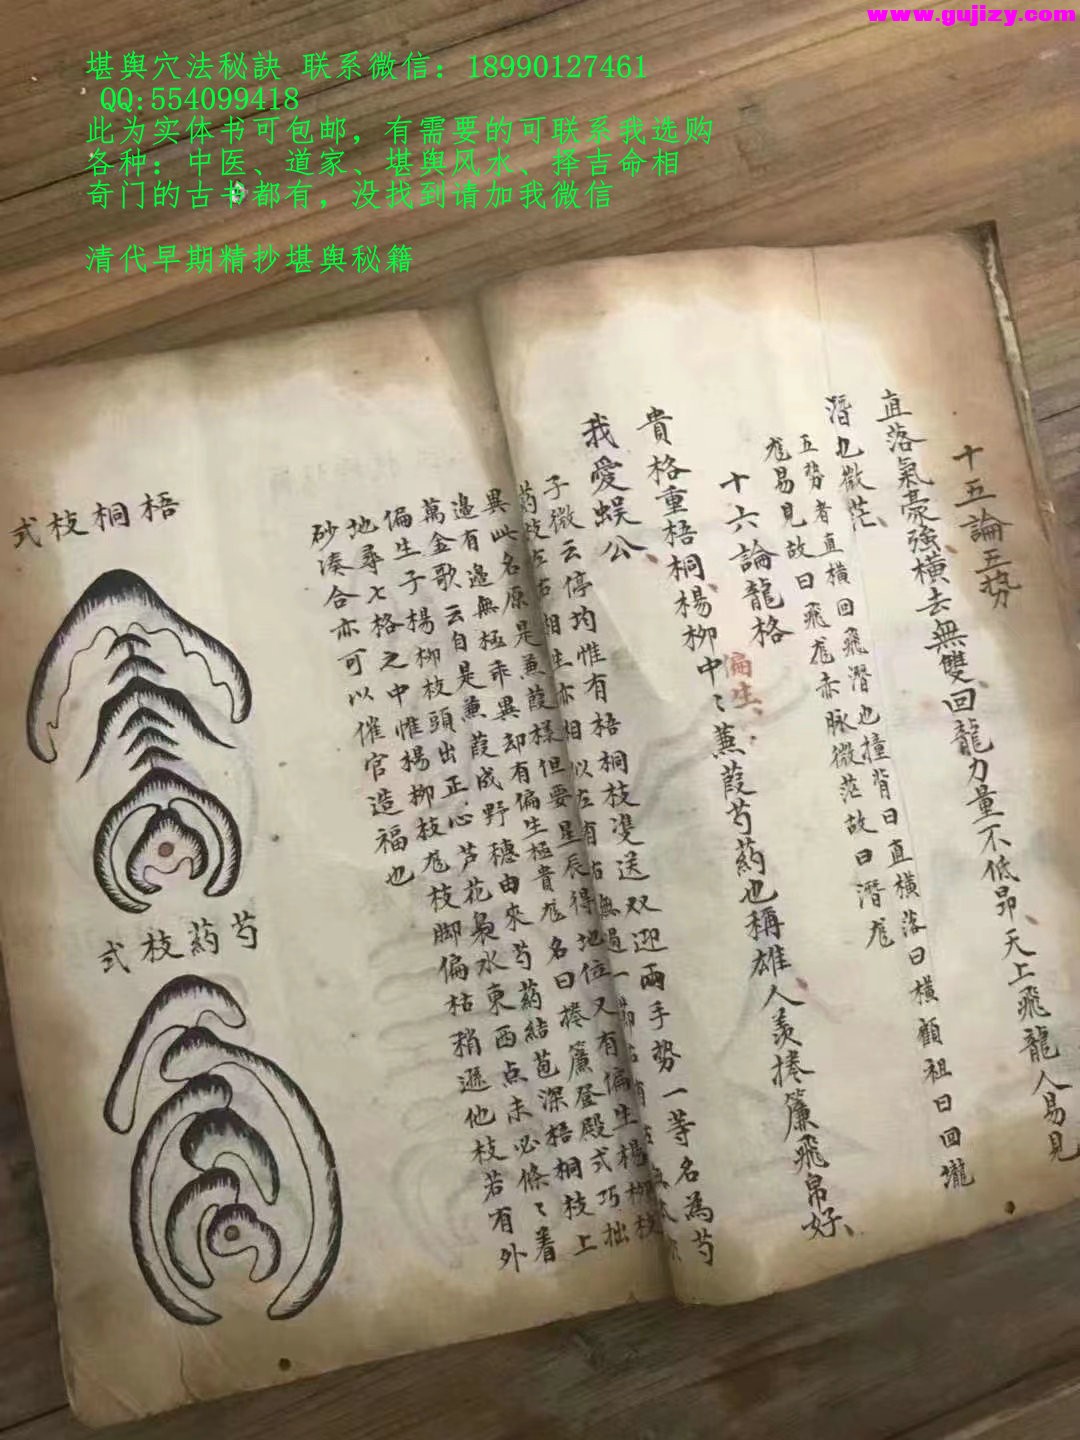 www.gujizy.com
堪舆穴法秘訣 联系微信：18990127461
QQ:554099418
此为实体书可包邮，有需要的可联系我选购
各种：中医、道家、堪舆风水、择吉命相
奇门的古书都有，没找到请加我微信
清代早期精抄堪舆秘籍
十五論五势
直落氣豪強橫去無雙回龍力量不低昂天上飛龍人易見
潛也微茫
五势者直横回飛潛也撞背曰直横落曰横顧祖曰回瀧
尨易見故曰飛尨亦脉微茫故曰潛尨
十六論龍格
貴格重梧桐楊柳中〻蒹葭芍葯也稱雄人羡捲簾飛帛好
偏生
我愛蜈公
子微云停均惟有梧桐枝凌送双迎兩手势一等名為芍
葯枝左右相生亦相似左有右無過一
異此名原是蒹葭樣但要星辰得地位又有偏生楊柳枝
邉有邉無極乖異却有偏生極貴尨名曰捲簾登殿式巧拙
萬金歌云自是蒹葭成野穗由來芍葯結苞深梧桐枝上
偏生子楊柳枝頭出正心芦花裊水東西点未必條〻着
地尋七格之中惟楊柳枝尨枝脚偏枯稍遜他枝若有外
砂湊合亦可以催官造福也
梧桐枝式
芍葯枝式